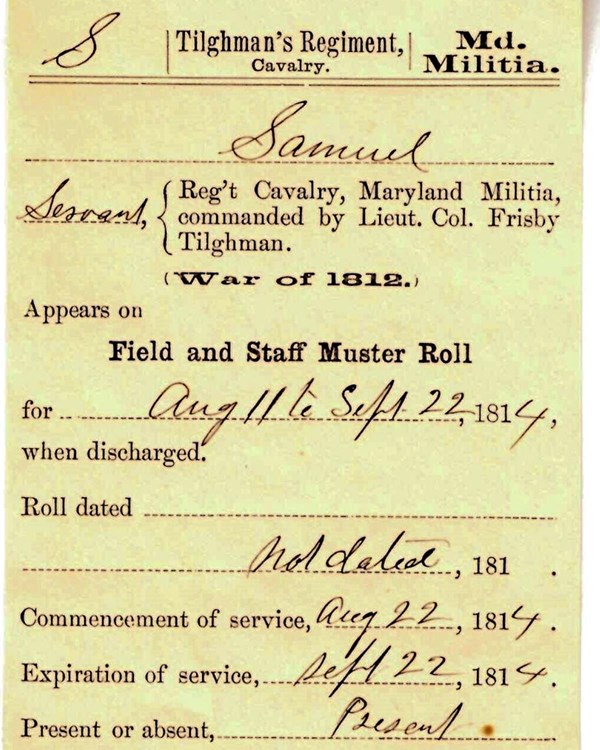 S Tilghman's Regiment, Md.
Cavalry. Militia.
Samuel
Servant, Reg't Cavalry, Maryland Militia,
commanded by Lieut. Col. Frisby
Tilghman.
(War of 1812.)
Appears on
Field and Staff Muster Roll
for Aug 11 to Sept 22, 1814,
when discharged.
Roll dated
Not dated, 181 .
Commencement of service, Aug 22, 1814.
Expiration of service, Sept 22, 1814.
Present or absent, Present